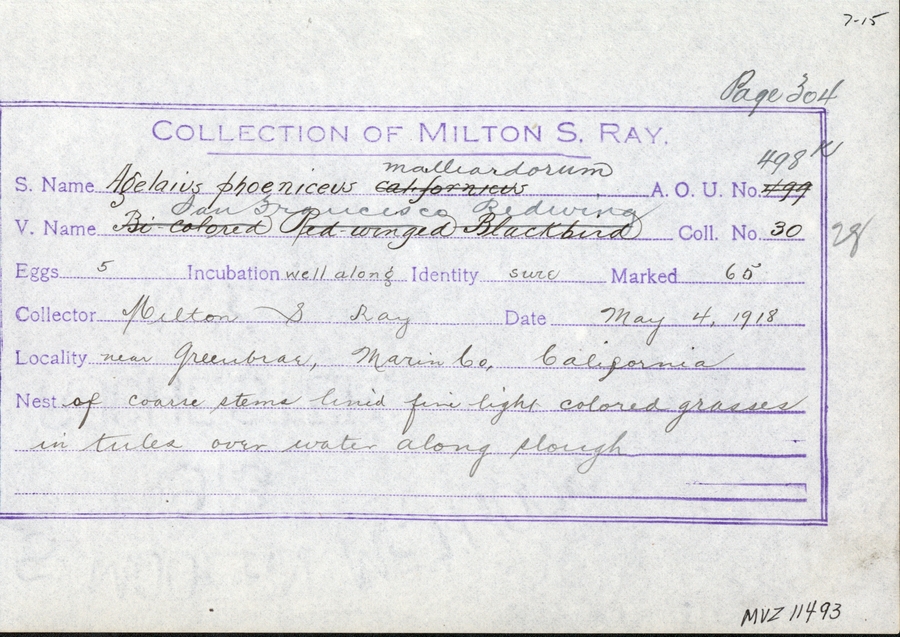 7-15
Page 304
COLLECTION OF MILTON S. RAY.
malliardorum 498
S. Name Agelaius phoeniceus californicus A. O. U. No. 499
San Francisco Redwing
V. Name Bi-colored Red-winged Blackbird Coll. No. 30 28
Eggs 5 Incubation well along Identity sure Marked 65
Collector Milton S Ray Date May 4, 1918
Locality near Greenbrae, Marin Co, California
Nest of coarse stems lined fine light colored grasses
in tules over water along slough
MVZ 11493